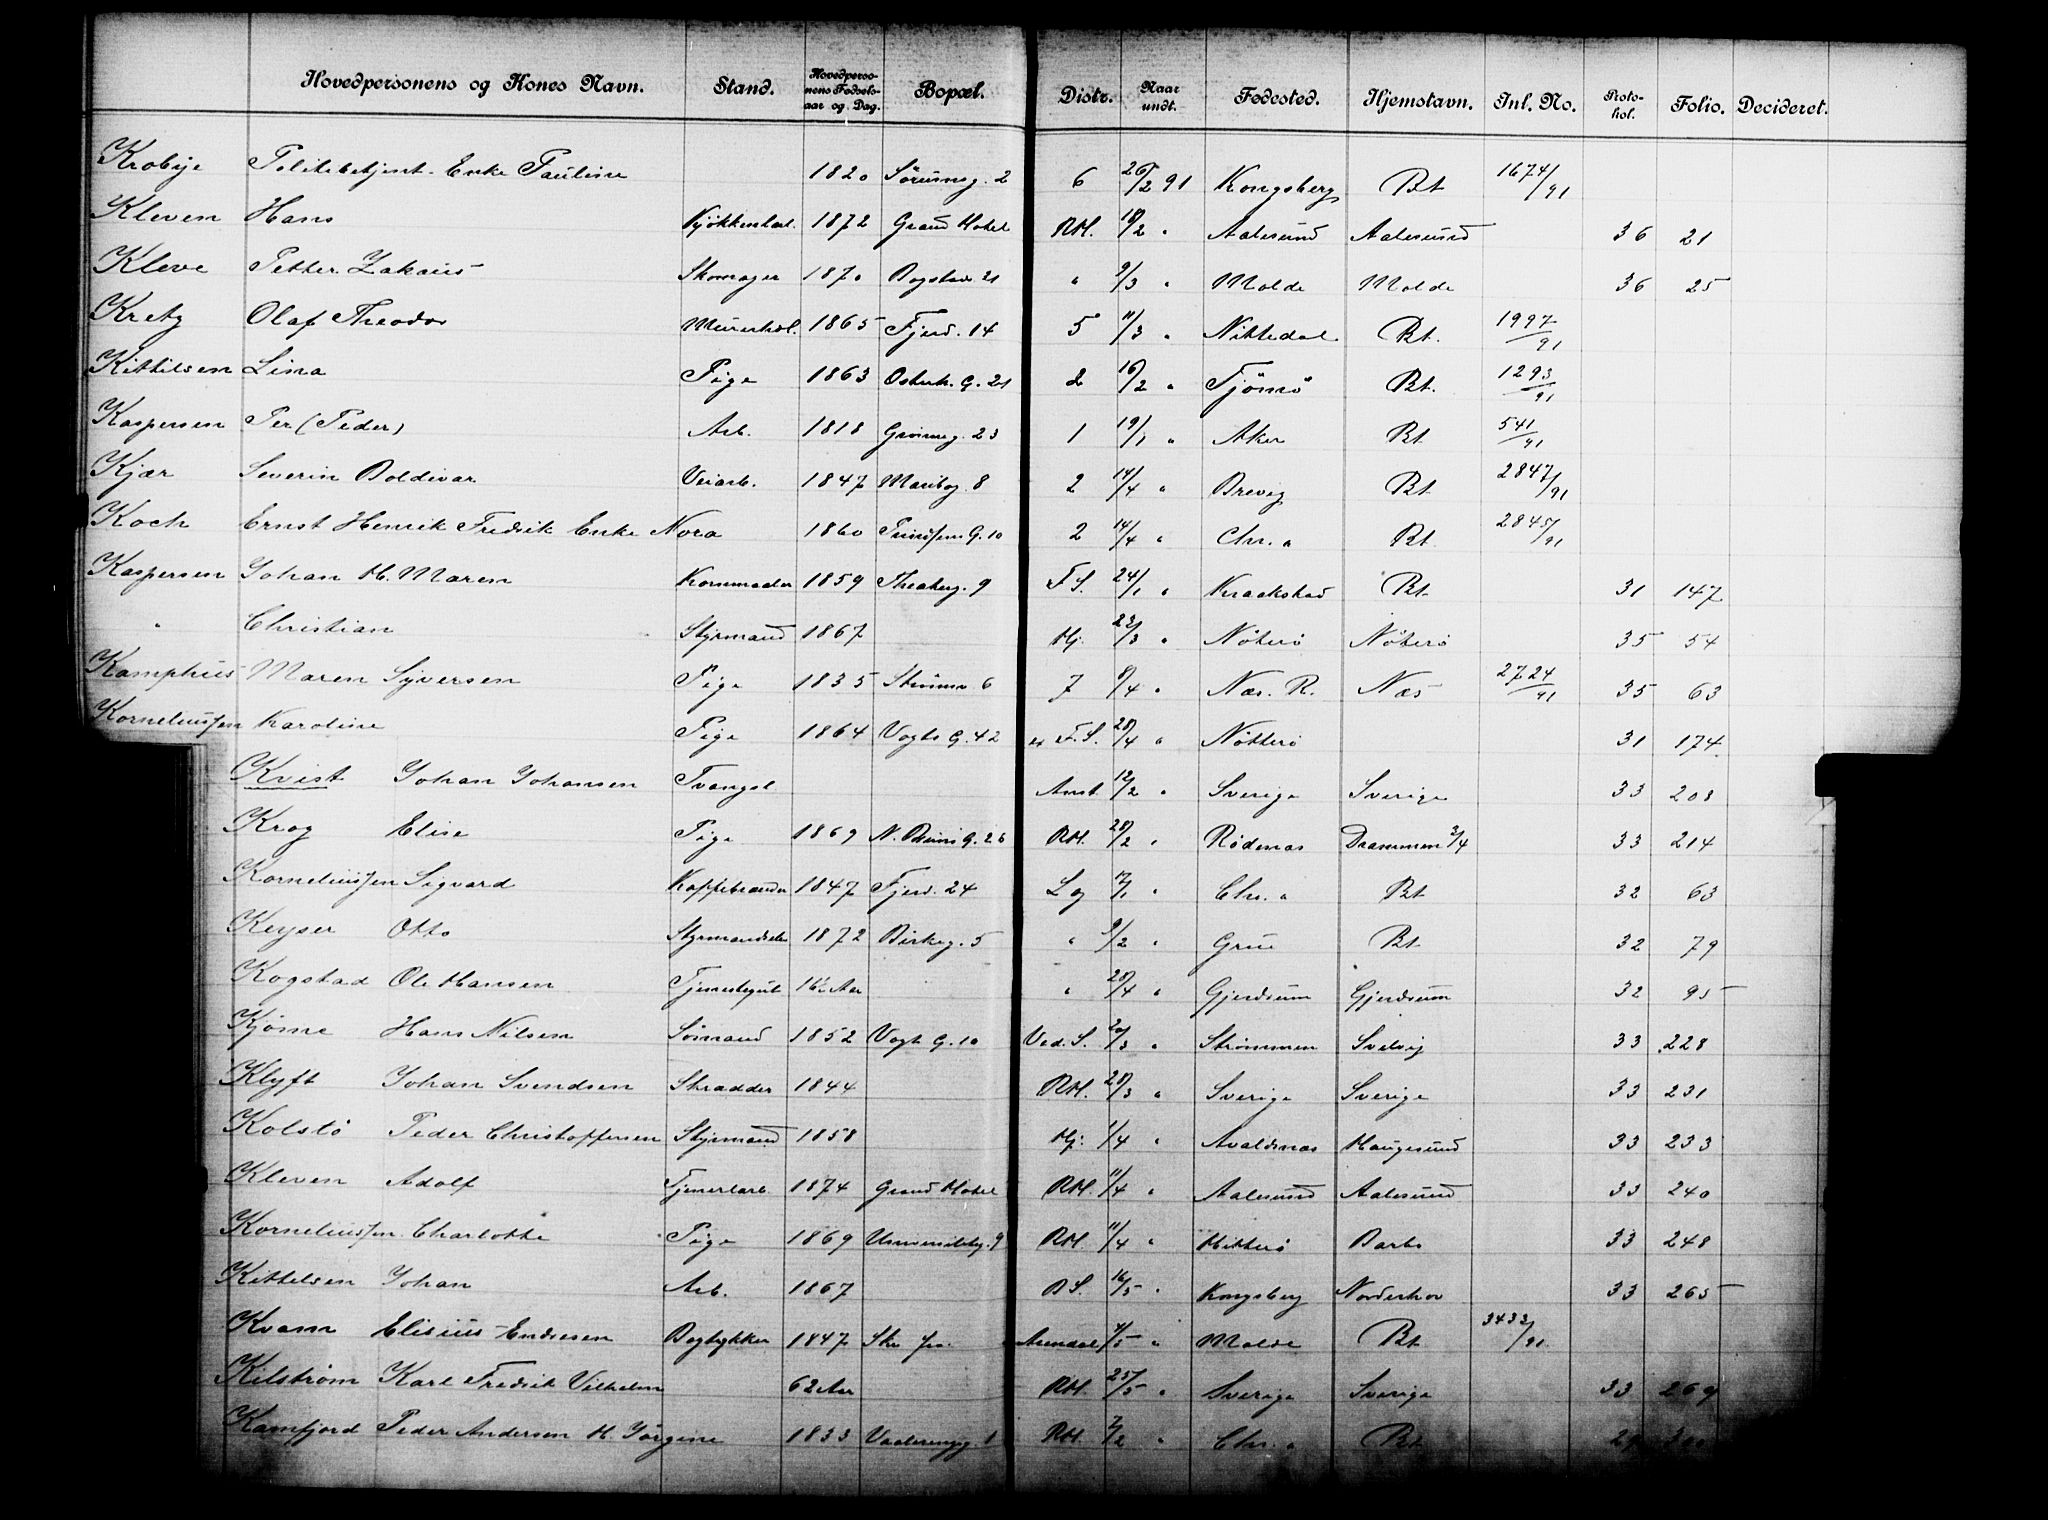 Hovedpersonens og Kones Navn. Stand. Hovedpersonens Fødselsaar og Dag. Bopæl. Distr. Naar undt. Fødested. Hjemstavn. Inl. No. Protokol. Folio. Decideret.
Krobye Politibetjent Enke Pauline 1820 Sörumsg. 2 6 26/2 91 Kongsberg Bt 1674/91
Kleven Hans Kjøkkenkarl. 1872 Grand Hotel RH. 18/2 " Aalesund Aalesund 36 21
Kleve Petter Zakaris Skomager 1870 Bogstav. 21 " 9/3 " Molde Molde 36 25
Kretz Olaf Theodor Murerhdl. 1865 Fjerd. 14 5 11/3 " Nittedal Bt. 1997/91
Kittilsen Lina Pige 1863 Osterh. G. 21 2 16/2 " Tjömö Bt. 1293/91
Kaspersen Per (Peder) Arb. 1818 Grönneg. 23 1 19/1 " Aker Bt 541/91
Kjær Severin Boldivar Veiarb. 1847 Maribog. 8 2 14/4 " Brevig Bt 2847/91
Koch Ernst Henrik Fredrik Enke Nora 1860 Prinssens G. 10 2 14/4 " Chr.a Bt. 2845/91
Kaspersen Johan H. Maren Kornmaaler 1859 Theaterg. 9 F.S. 24/1 " Kraakstad Bt. 31 147
" Christian Styrmand 1867 Hj. 22/3 " Nöterö Nöterö 35 54
Kamphus Maren Syversen Pige 1835 Strömsv 6 7 9/4 " Næs. R. Næs 2724/91 35 63
Korneliussen Karoline Pige 1864 Vogts G. 42 F.S. 28/4 " Nötterö 31 174
Kvist Johan Johansen Tvangsl Amt 12/2 " Sverige Sverige 33 208
Krog Elise Pige 1869 N. Bruns G. 26 RH. 28/2 " Rödenæs Drammen 3/4 33 214
Korneliussen Sigvard Kaffebrænder 1847 Fjerd. 24 Lg 7/1 " Chr.a Bt 32 63
Keyser Otto Styrmandselev 1872 Birkeg. 5 " 9/2 " Grue Bt 32 79
Kogstad Ole Hansen Tjenestegut 16 Aar " 28/4 " Gjerdrum Gjerdrum 32 95
Kjöme Hans Nilsen Sömand 1852 Vogt G. 10 Ved. S. 20/3 " Strömmen Svelvig 33 228
Klyft Johan Svendsen Skrædder 1844 RH. 28/3 " Sverige Sverige 33 231
Kolstö Peder Christoffersen Styrmand 1858 Hj. 1/4 " Avaldsnæs Haugesund 33 233
Kleven Adolf Tjenerlærl. 1874 Grand Hotel RH. 11/4 " Aalesund Aalesund 33 240
Korneliussen Charlotte Pige 1869 Universitetsg. 9 RH. 11/4 " Hitterö Barbo 33 248
Kittelsen Johan Arb. 1867 B.S. 16/5 " Kongsberg Norderhov 33 265
Kvam Elisius Endresen Bogtrykker 1847 Arendal 4/5 " Molde Bt 3433/91
Kilström Karl Fredrik Vilhelm 62 Aar RH. 25/5 " Sverige Sverige 33 269
Kamfjord Peder Andersen H. Jörgine 1833 Vaalerengg 1 RH. 7/2 " Chr.a Bt 29